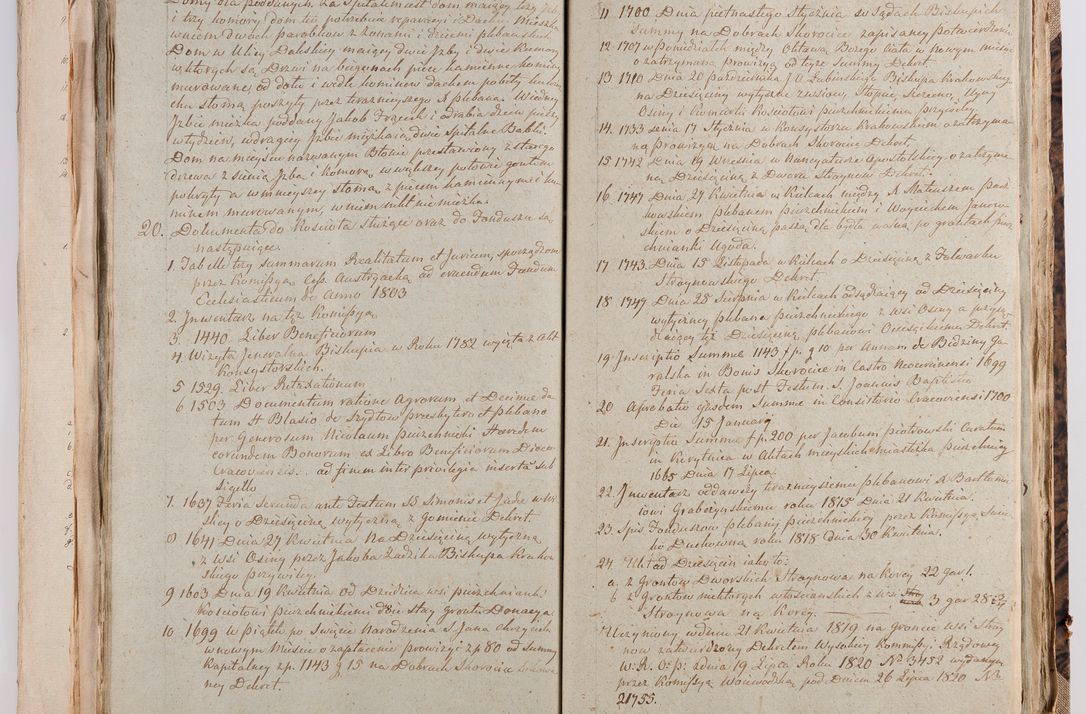 Domy dla poddanych. Za Spitalmi est dom maiący trzy Jzb
i trzy komory dom ten potrzebuie reparacyi i Dachu. Mieszk.
w niem dwóch parobków z żonami i dziećmi plebańskich
Dom w Ulicy Dalskiey maiący dwie Jzby i dwie Komory
w których są Drzwi na biegunach piece kamienne kominy
murowane od dołu i wedle kominów dachem pokryty
cha słomą poszyty przez teraznieyszego X Plebana. W iedney
Jzbie mieszka poddany Jakob Trzcik i odrabia dzień pieszy
w tydzień, w drugiey Jzbie mieszkaią dwie Spitalne Babki.
Dom na mieyscu nazwanym Błonie przestawiony z starego
drzewa z sienią Jzba i komorą, w większey połowie gontem
pokryty a w mnieyszey słomą, z piecem kamiennym i ko
minem murowanym, w niem nikt nie mieszka.
20. Dokumenta do Kościoła służące oraz do Fundusza są
następuiące.
1. Tabelle trzy summarum Realitatum et Jurium sporządzone
przez Komissyą Ces. Austryacką ad eruendum Fundum
Ecclesiasticum de Anno 1803
2. Jnwentarz na tęż Komissyą
3. 1440 Liber Beneficiorum
4 Wizyta Jeneralna Biskupia w Roku 1782 wyięta z Akt
Konsystorskich.
5 1529 Liber Retaxationum
6 1503 Documentum ratione Agrorum et Decimæ da
tum H Blasio de Szydłow presbytero et Plebano
per Generosum Nicolaum Pierzchnicki Haeredem
eorundem Bonorum ex Libro Beneficiorum Diœces
Cracoviensis .. ad finem inter privilegia inserta sub
sigello
7. 1637 Feria Secunda ante Festum SS Simonis et Judæ w Wi
slicy o Dziesięcinę wytyczną z Gomienic Dekret.
8 1641 Dnia 27 Kwietnia Na Dziesięcinę wytyczną
z Wsi Osiny przez Jakoba Zadzika Biskupa Krako
wskiego przywiley.
9 1603 Dnia 19 Kwietnia od Dziedzica wsi pierzchnianki
Kościołowi Pierzchnickiemu dwie Stay gruntu Donacya.
10 1699 w Piątek po Święcie Narodzenia S Jana chrzcicela
w nowym Mieście o zapłacenie prowizyi zp 80 od Summy
Kapitalney zp. 1143 g 15 na Dobrach Skorocice
ney Dekret.
11 1700 Dnia piętnastego Stycznia w Sądach Biskupich
summy na Dobrach Skorocice zapisaney potwierdzenie
12 1707 w Poniedziałek między Oktawą Bożego Ciała w nowym mieście
o zatrzymaną Prowizyą od tyże Summy Dekret.
13 1710 Dnia 20 Października J. O Łubinskiego Biskupa Krakowskiego
na Dziesięciny wytyczne z wsiow, Stopiec Szczecno, Ugay
Osiny i Komorki Kościołowi pierzchnickiemu przywiley
14. 1733 Dnia 17 Stycznia w Konsystorzu Krakowskiem o zatrzyma
ną Prowizyą na Dobrach Skorocice Dekret.
15 1742 Dnia 19 Września w Nuncyaturze Apostolskiey o zatrzyma
ną Dziesięcinę z Dworu Strojnow Dekret.
16. 1747 Dnia 27 Kwietnia w Kielcach między X Mateuszem
kowskiem plebanem pierzchnickiem i Woyciechem Janow
skiem o Dziesięcinę paszą dla bydła wolną po gruntach pierz
chnianki Ugoda.
17 1743 Dnia 15 Listopada w Kielcach o Dziesięcinę z Folwarku
Strojnowskiego Dekret
18 1747 Dnia 28 Sierpnia w Kielcach odsądzaiący od Dziesięciny
wytyczney plebana Pierzchnickiego z wsi Osiny a przysą
dzaiący też Dziesięcinę plebanowi Ociesęckiemu Dekret
19. Jnscriptio Summæ 1143 fp. g 10 per Annam de Bidziny Gó
ralska in Bonis Skorocice in Castro Neocorcinensi 1699
Feria Sexta post Festum S. Joannis Baptistæ
20 Aprobatio ejusdem Summæ in Consistorio Cracoviensi 1700
Die 15 Januarij
21. Jnscriptio Summæ f p. 200 per Jacobum Piotrowski Curatum
in Kurytnica w Aktach mieyskich miasteczka pierzchnicy
1665 Dnia 17 Lipca
22. Jnwentarz oddawczy teraznieyszemu plebanowi X Bartłomi
iowi Graborzyskiemu roku 1815 Dnia 21 Kwietnia.
23. Spis Funduszow plebanij pierzchnickiey przez Komissyą Świec
ko Duchowną roku 1818 Dnia 30 Kwietnia.
24 Układ Dziesięcin iako to:
a. z Gruntow Dworskich Straynowa na korcy 22 gar 1.
b z Gruntow niektorych włościańskich z wsi
Straynowa na Korcy. 3 gar 28 2/4
Uczyniony w dniu 21 Kwietnia 1819 na groncie Wsi Stroj
now zatwierdzony Dekretem Wysokiey Kommissyi Rządowey
W. R. O. p: z dnia 19 Lipca Roku 1820 Nr 3452 wydanym
przez Komissyą Woiewodzką pod Dniem 26 Lipca 1820 Nr
21755.